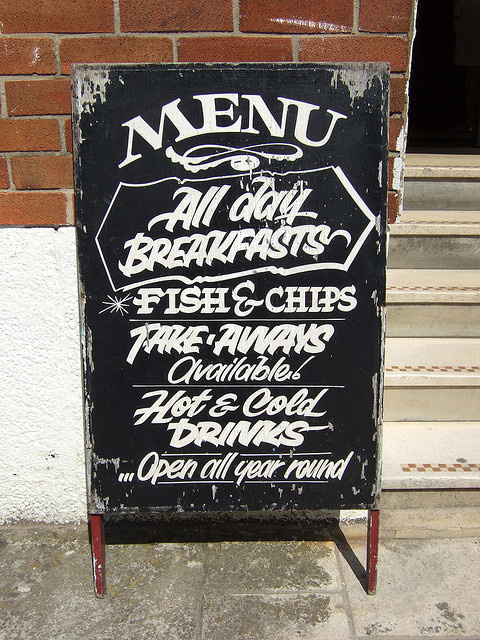 MENU
All day
BREAKFASTS
FISH & CHIPS
TAKE·AWAYS
Available!
Hot & Cold
DRINKS
...Open all year round